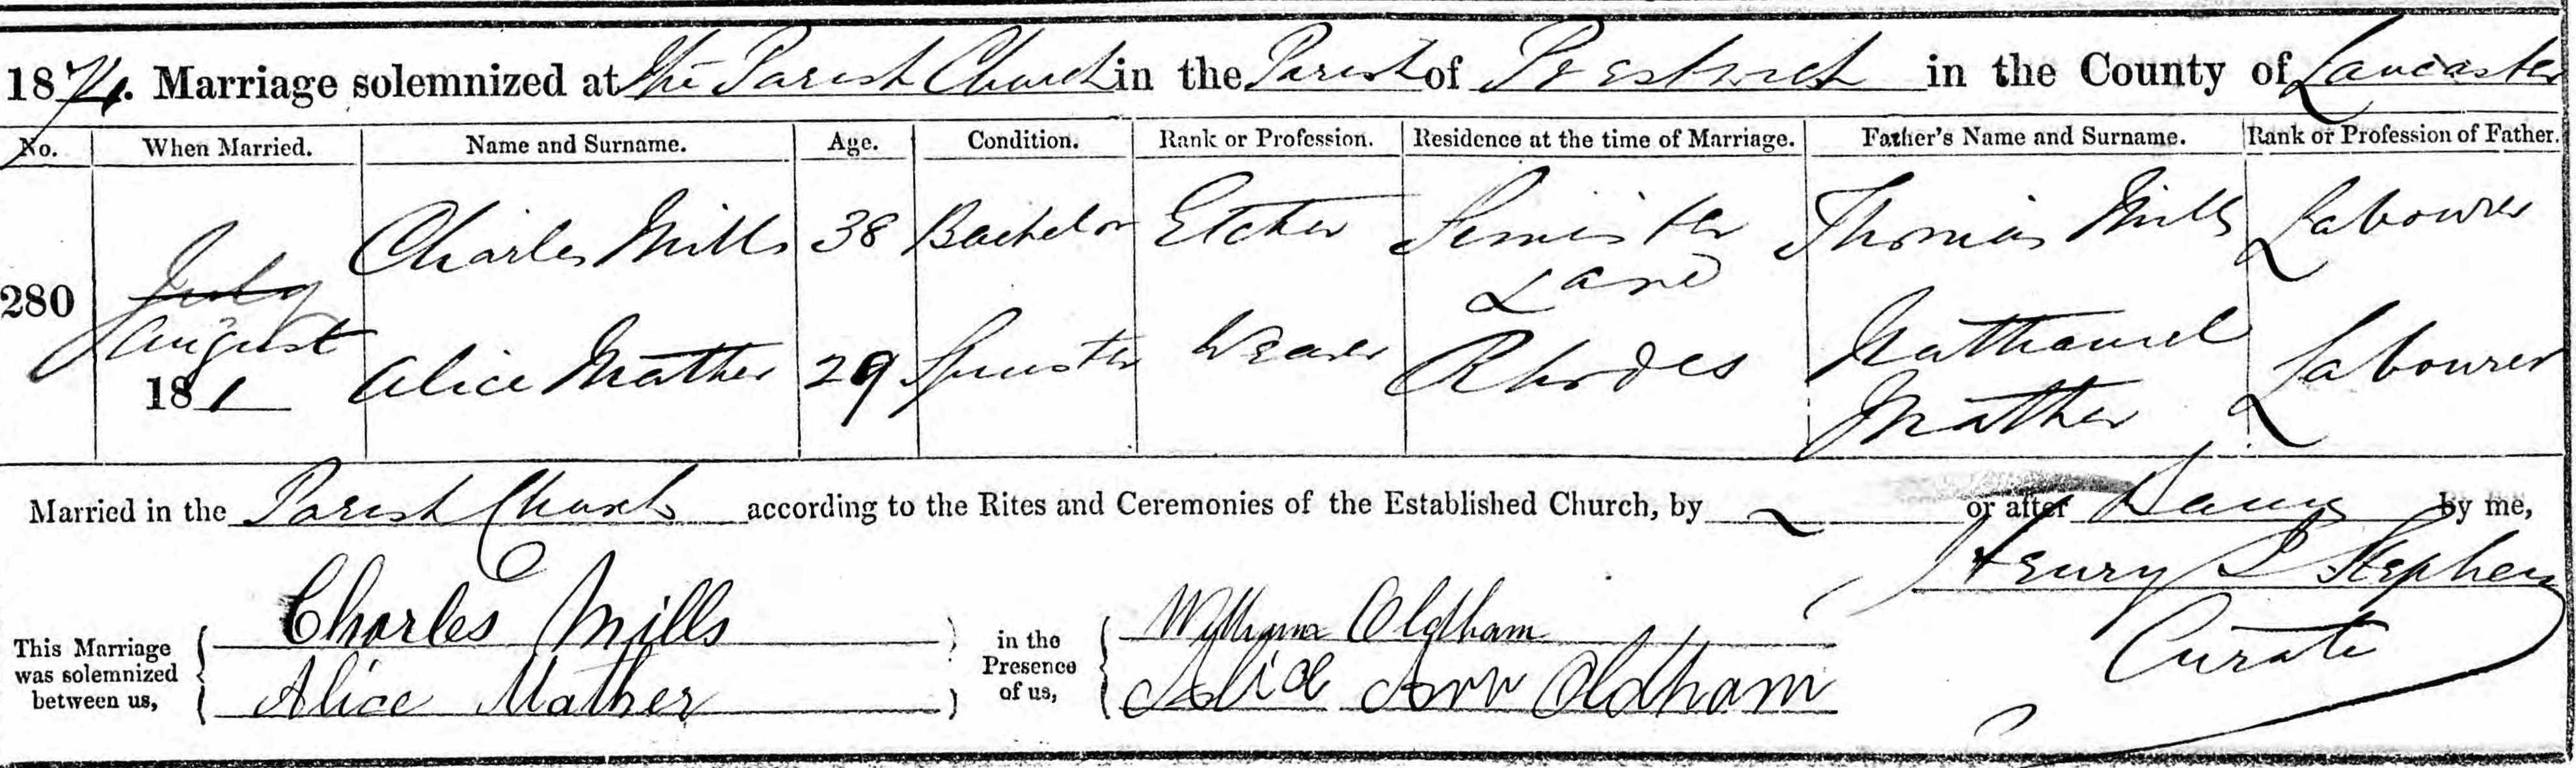 1874. Marriage solemnized at The Parish Church in the Parish of Prestwich in the County of Lancaster
No. When Married. Name and Surname. Age. Condition. Rank or Profession. Residence at the time of Marriage. Father's Name and Surname. Rank or Profession of Father.
280 July August 1 18 Charles Mills 38 Bachelor Etcher Simister Lane Thomas Mills Labourer
Alice Mather 29 Spinster Weaver Rhodes Nathaniel Mather Labourer
Married in the Parish Church according to the Rites and Ceremonies of the Established Church, by or after Banns by me,
Henry L Stephens
Curate
This Marriage was solemnized between us, Charles Mills in the Presence of us, William Oldham
Alice Mather Alice Ann Oldham